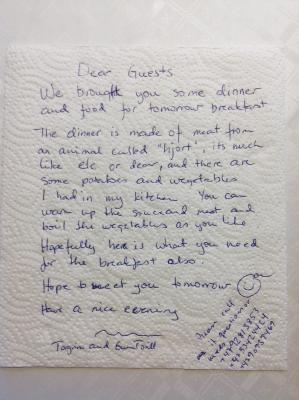 Dear Guests
We brought you some dinner
and food for tomorrow breakfast
The dinner is made of meat from
an animal called "hjort", its much
like elc or dear, and there are
some potatoes and wegetables
I had in my kitchen You can
warm up the sauce and meat and
boil the wegetables as you like
Hopefully here is what you need
for the breakfast also.
Hope to meet you tomorrow
Have a nice evening
and
Please call
if